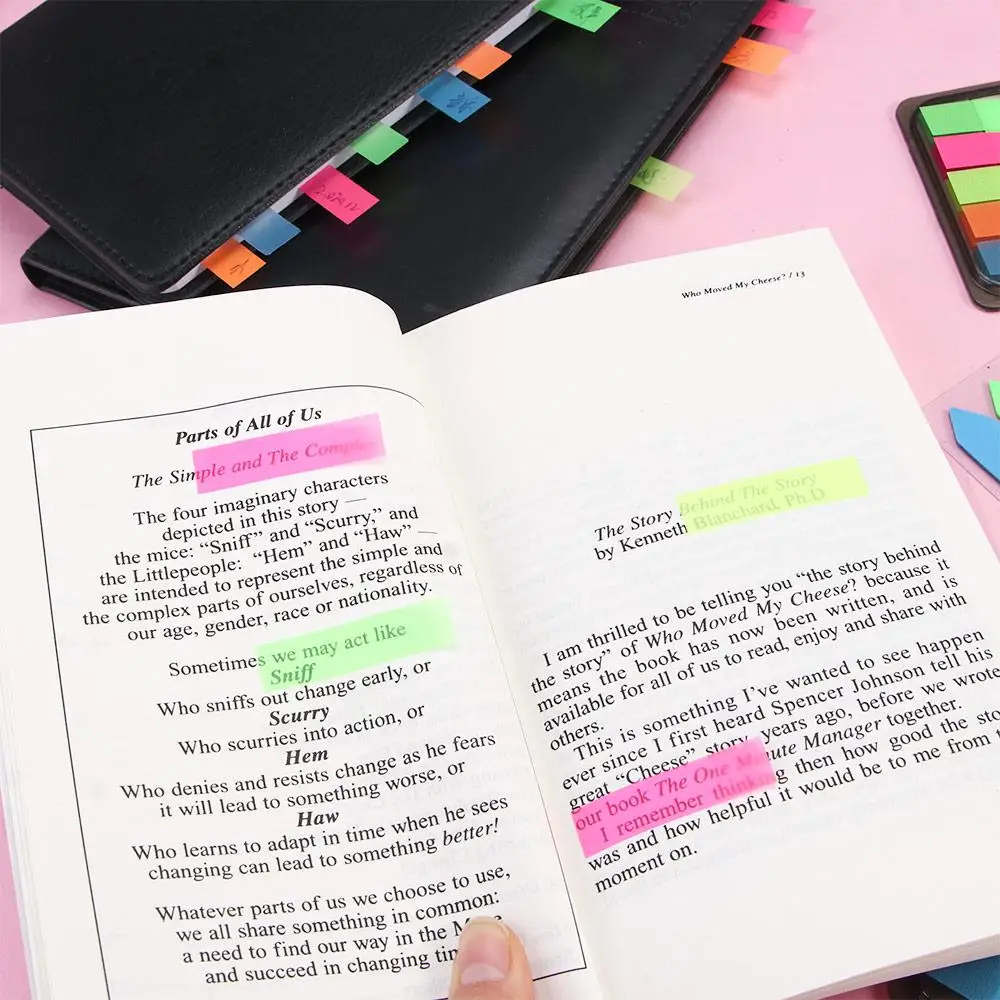 Who Moved My Cheese? / 13
Parts of All of Us
The Simple and The Complex
The four imaginary characters
depicted in this story —
the mice: “Sniff” and “Scurry,” and
the Littlepeople: “Hem” and “Haw” —
are intended to represent the simple and
the complex parts of ourselves, regardless of
our age, gender, race or nationality.
Sometimes we may act like
Sniff
Who sniffs out change early, or
Scurry
Who scurries into action, or
Hem
Who denies and resists change as he fears
it will lead to something worse, or
Haw
Who learns to adapt in time when he sees
changing can lead to something better!
Whatever parts of us we choose to use,
we all share something in common:
a need to find our way in the
and succeed in changing
The Story Behind The Story
by Kenneth Blanchard, Ph.D.
I am thrilled to be telling you “the story behind
the story” of Who Moved My Cheese? because it
means the book has now been written, and is
available for all of us to read, enjoy and share with
others.
This is something I’ve wanted to see happen
ever since I first heard Spencer Johnson tell his
great “Cheese” story years ago, before we wrote
our book The One Minute Manager together.
I remember thinking then how good the
was and how helpful it would be to me from
moment on.